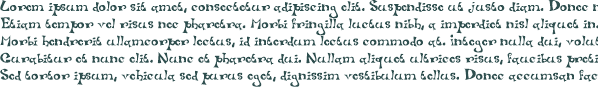 Lorem ipsum dolor sit amet, consectetur adipiscing elit. Suspendisse ut justo diam. Donec
Etiam tempor vel risus nec pharetra. Morbi fringilla luctus nibh, a imperdiet nisl aliquet in.
Morbi hendrerit ullamcorper lectus, id interdum lectus commodo at. integer nulla dui,
Curabitur et nunc elit. Nunc et pharetra dui. Nullam aliquet ultrices risus, faucibus
Sed tortor ipsum, vehicula sed purus eget, dignissim vestibulum tellus. Donec accumsan